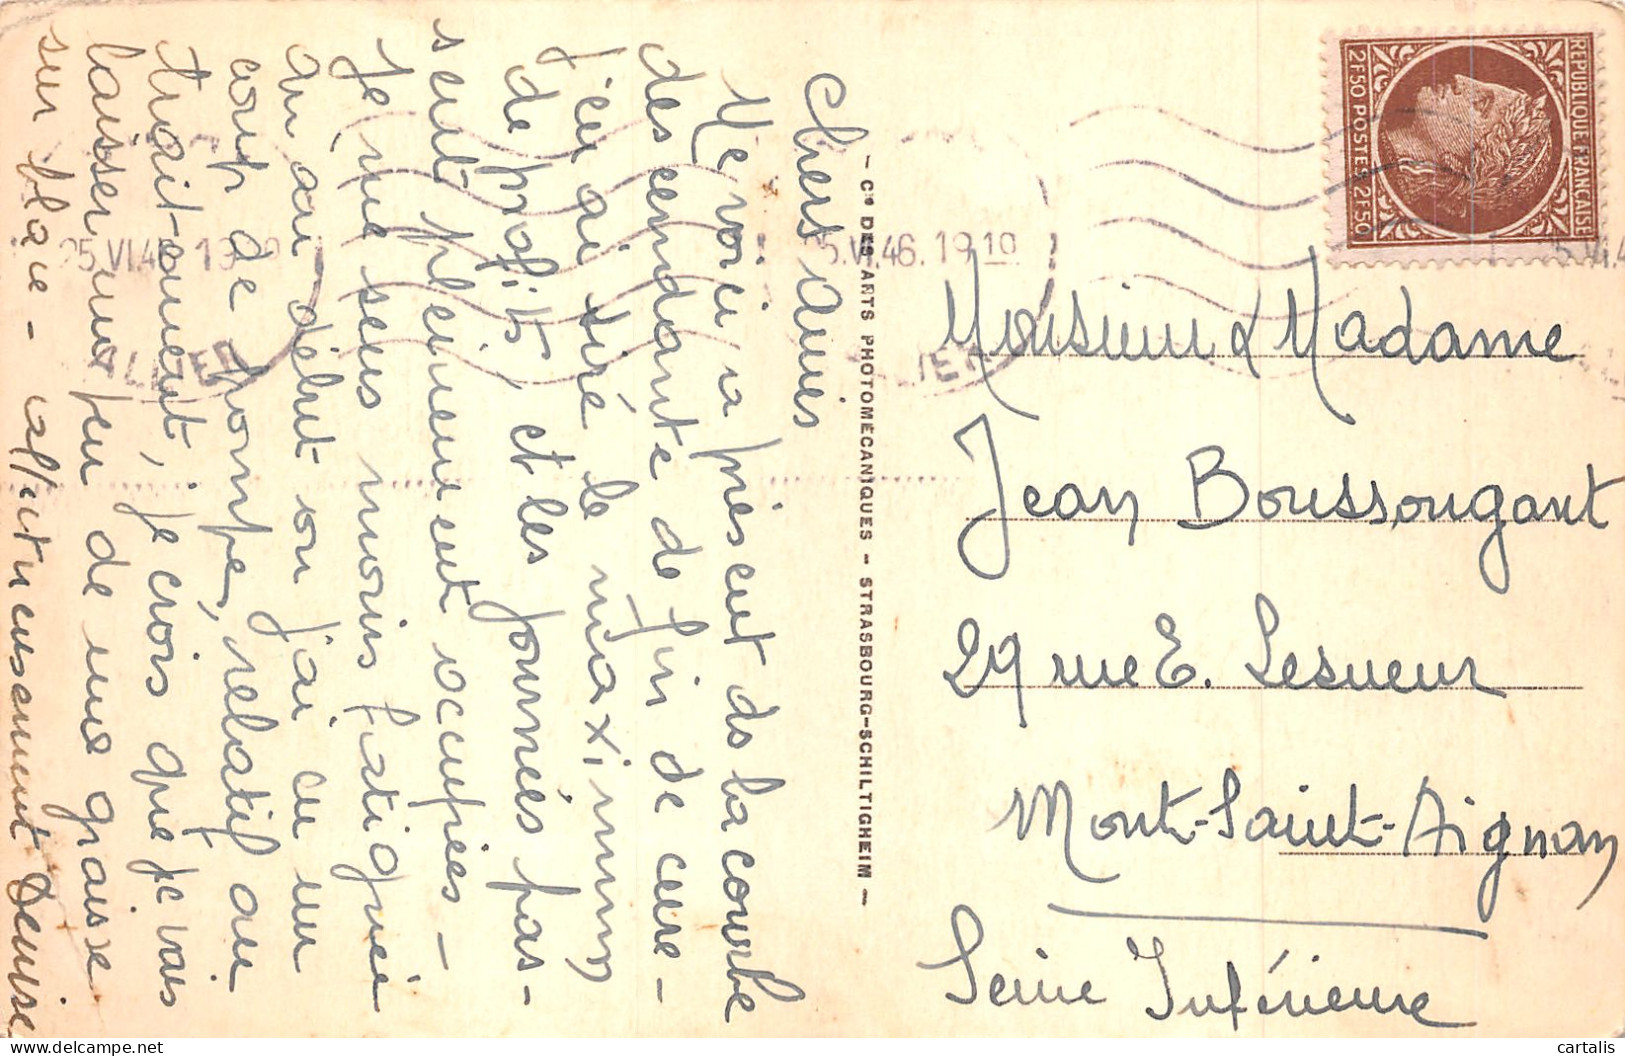 Chers amis
Me voici à présent ds la courbe
descendante de fin de cure -
j'en ai tiré le maximum
de profits, et les journées pas-
sent pleinement occupées -
Je me sens moins fatiguée
qu'au début où j'ai eu un
coup de pompe, relatif au
traitement, je crois que je vais
laisser un peu de ma graisse
sur place - affectueusement Denise
- Cie DES ARTS PHOTOMECANIQUES - STRASBOURG-SCHILTIGHEIM -
REPUBLIQUE FRANCAISE
2F50 POSTES 2F50
25.VI.46. 19 10
ALLIER
Monsieur & Madame
Jean Boussougant
29 rue E. Lesueur
Mont-Saint-Aignan
Seine Inférieure
cartalis